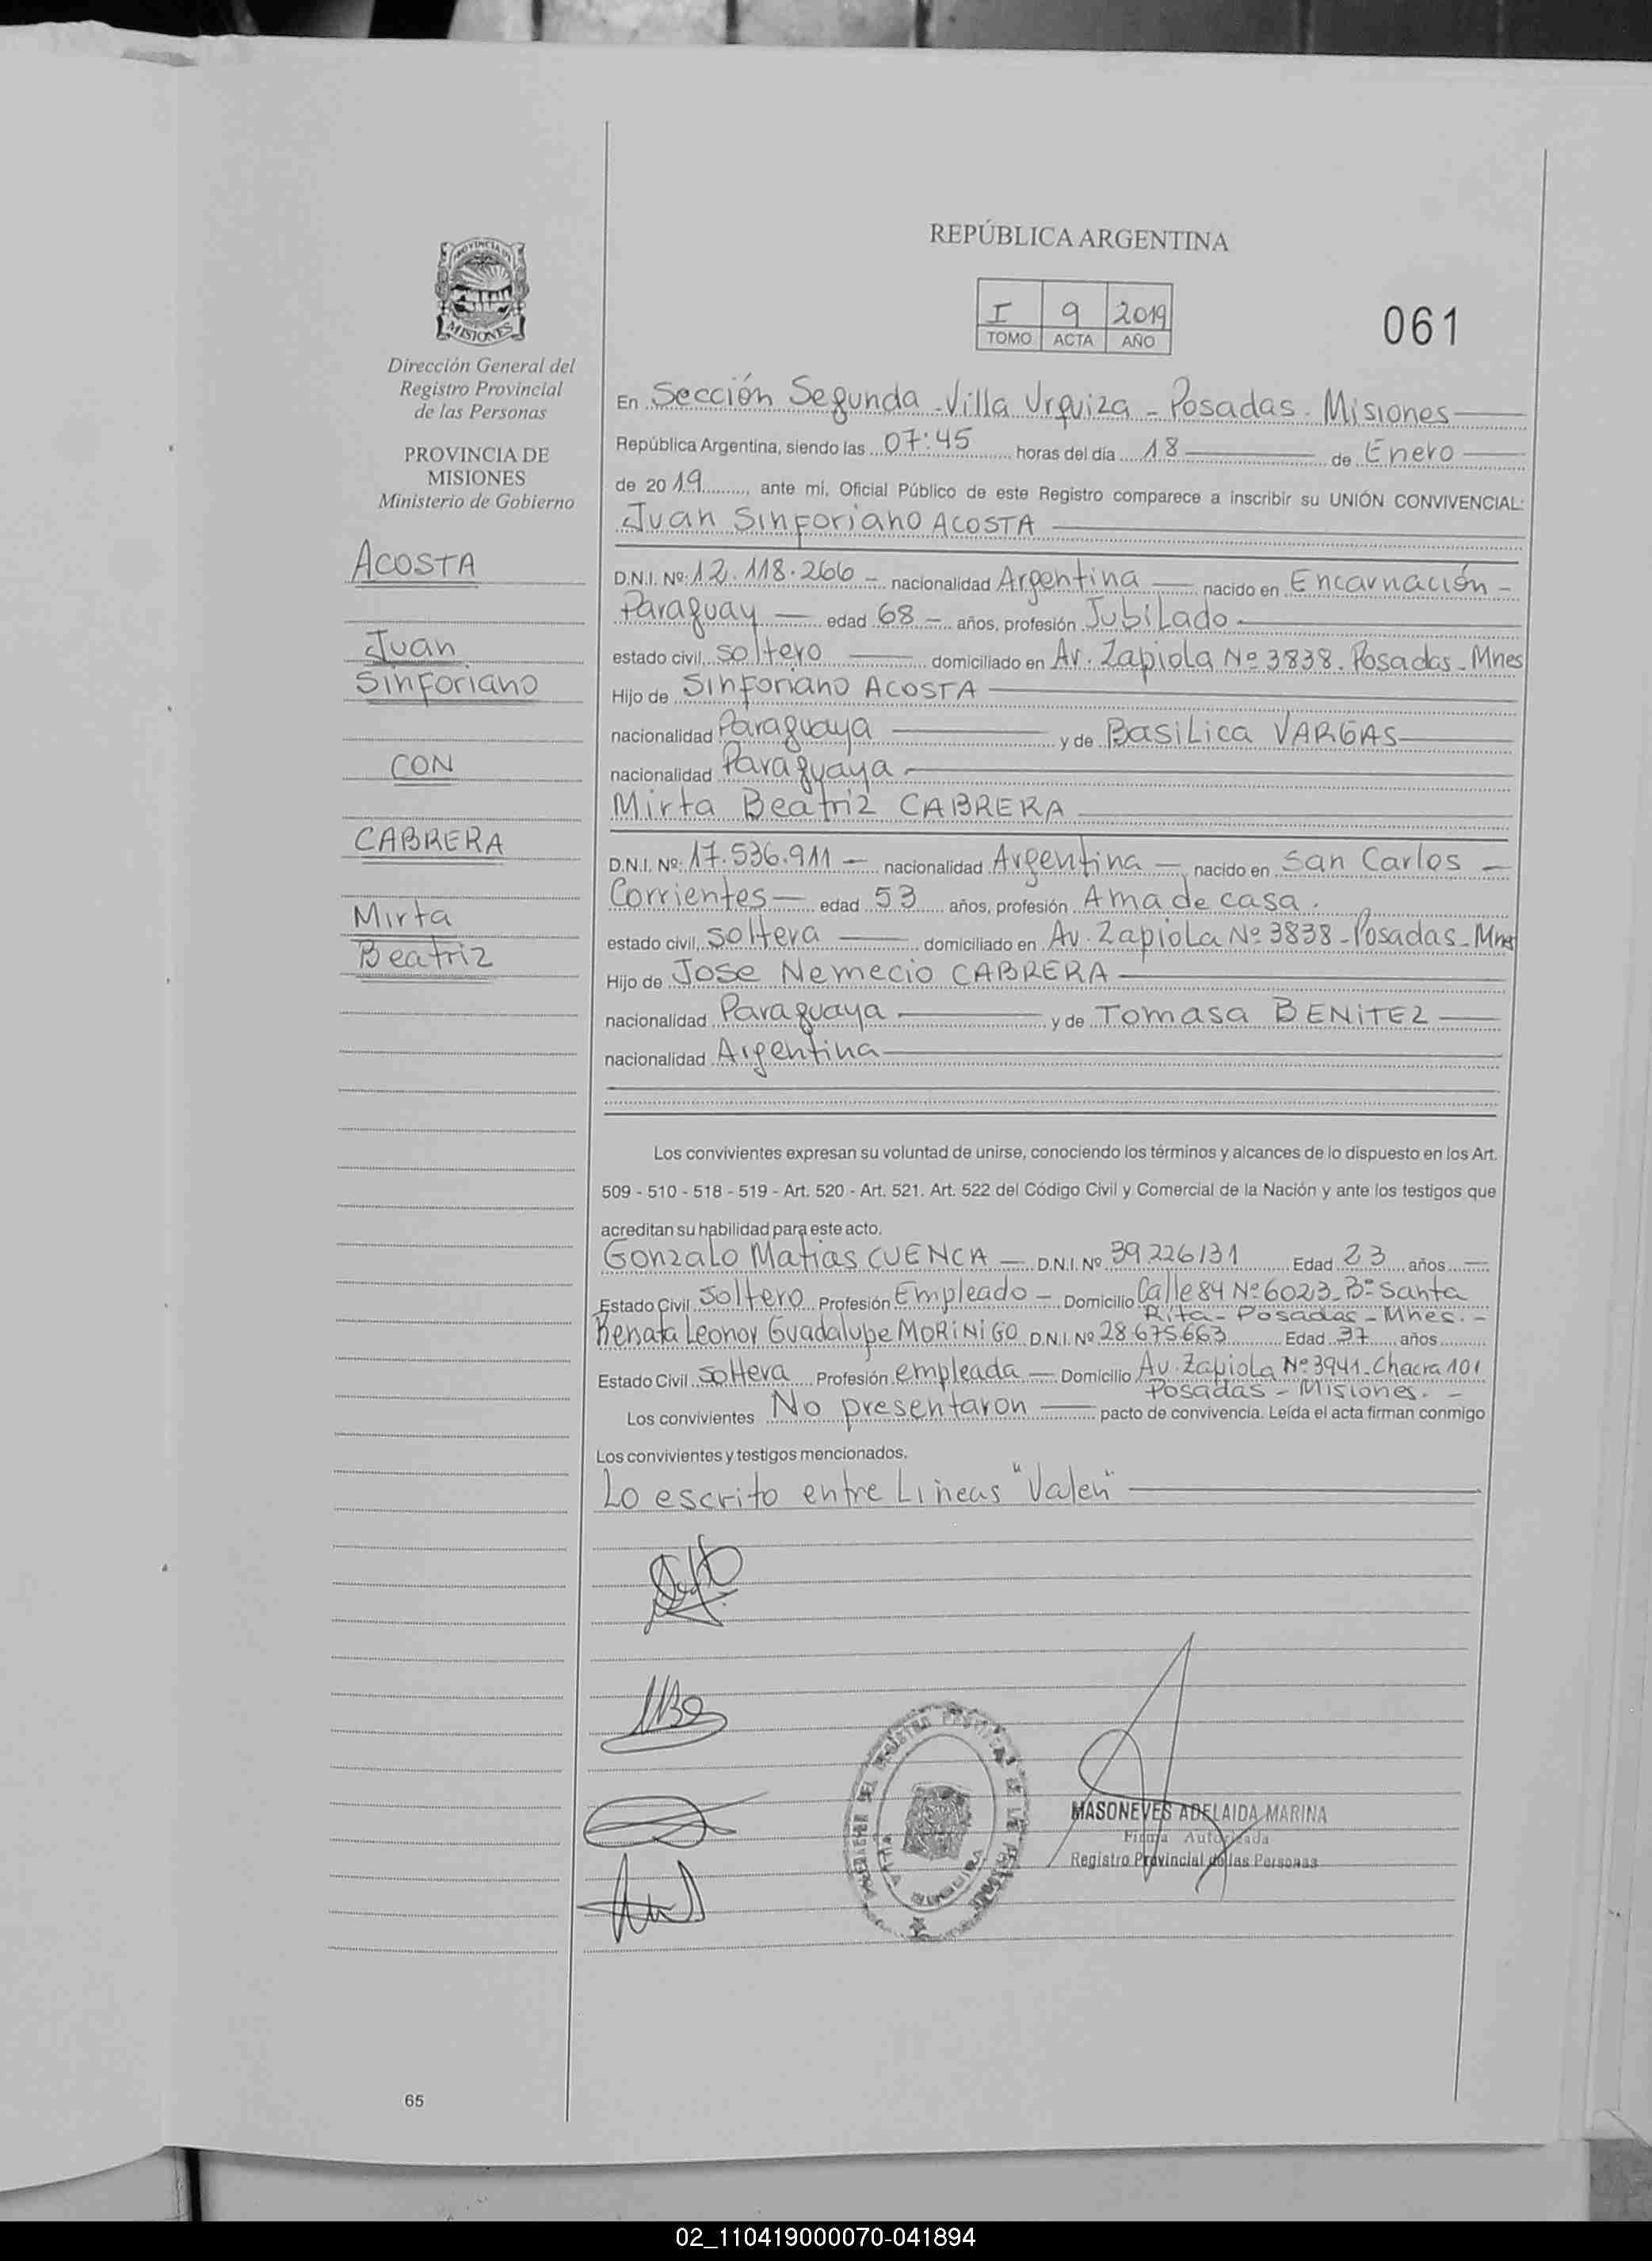 REPÚBLICA ARGENTINA
I 9 2019
TOMO ACTA AÑO
061
PROVINCIA DE
MISIONES
Dirección General del
Registro Provincial
de las Personas
PROVINCIA DE
MISIONES
Ministerio de Gobierno
ACOSTA
Juan
Sinforiano
CON
CABRERA
Mirta
Beatriz
En Sección Segunda - Villa Urquiza - Posadas - Misiones
República Argentina, siendo las 07:45 horas del día 18 de Enero
de 2019, ante mi, Oficial Público de este Registro comparece a inscribir su UNIÓN CONVIVENCIAL:
Juan Sinforiano ACOSTA
D.N.I. Nº: 12.118.266 - nacionalidad Argentina nacido en Encarnación -
Paraguay edad 68 - años, profesión Jubilado
estado civil, soltero domiciliado en Av. Zapiola Nº 3838. Posadas - Mnes
Hijo de Sinforiano ACOSTA
nacionalidad Paraguaya y de Basilica VARGAS
nacionalidad Paraguaya
Mirta Beatriz CABRERA
D.N.I. Nº: 17.536.911 - nacionalidad Argentina - nacido en San Carlos -
Corrientes edad 53 años, profesión Ama de casa.
estado civil, soltera domiciliado en Av. Zapiola Nº 3838 - Posadas - Mnes
Hijo de Jose Nemecio CABRERA
nacionalidad Paraguaya y de Tomasa BENITEZ
nacionalidad Argentina
Los convivientes expresan su voluntad de unirse, conociendo los términos y alcances de lo dispuesto en los Art.
509 - 510 - 518 - 519 - Art. 520 - Art. 521. Art. 522 del Código Civil y Comercial de la Nación y ante los testigos que
acreditan su habilidad para este acto.
Gonzalo Matias CUENCA - D.N.I. Nº 39.226131 Edad 23 años
Estado Civil Soltero Profesión Empleado - Domicilio Calle 84 Nº 6023 - Bº Santa
Rita - Posadas - Mnes. -
Renata Leonor Guadalupe MORINIGO D.N.I. Nº 28.675.663 Edad 37 años
Estado Civil Soltera Profesión empleada - Domicilio Av. Zapiola Nº 3941 - Chacra 101
Posadas - Misiones. -
Los convivientes No presentaron pacto de convivencia. Leída el acta firman conmigo
Los convivientes y testigos mencionados.
Lo escrito entre Lineas "Valen"
MASONEVES ADELAIDA MARINA
Firma Autorizada
Registro Provincial de las Personas
65
02_110419000070-041894